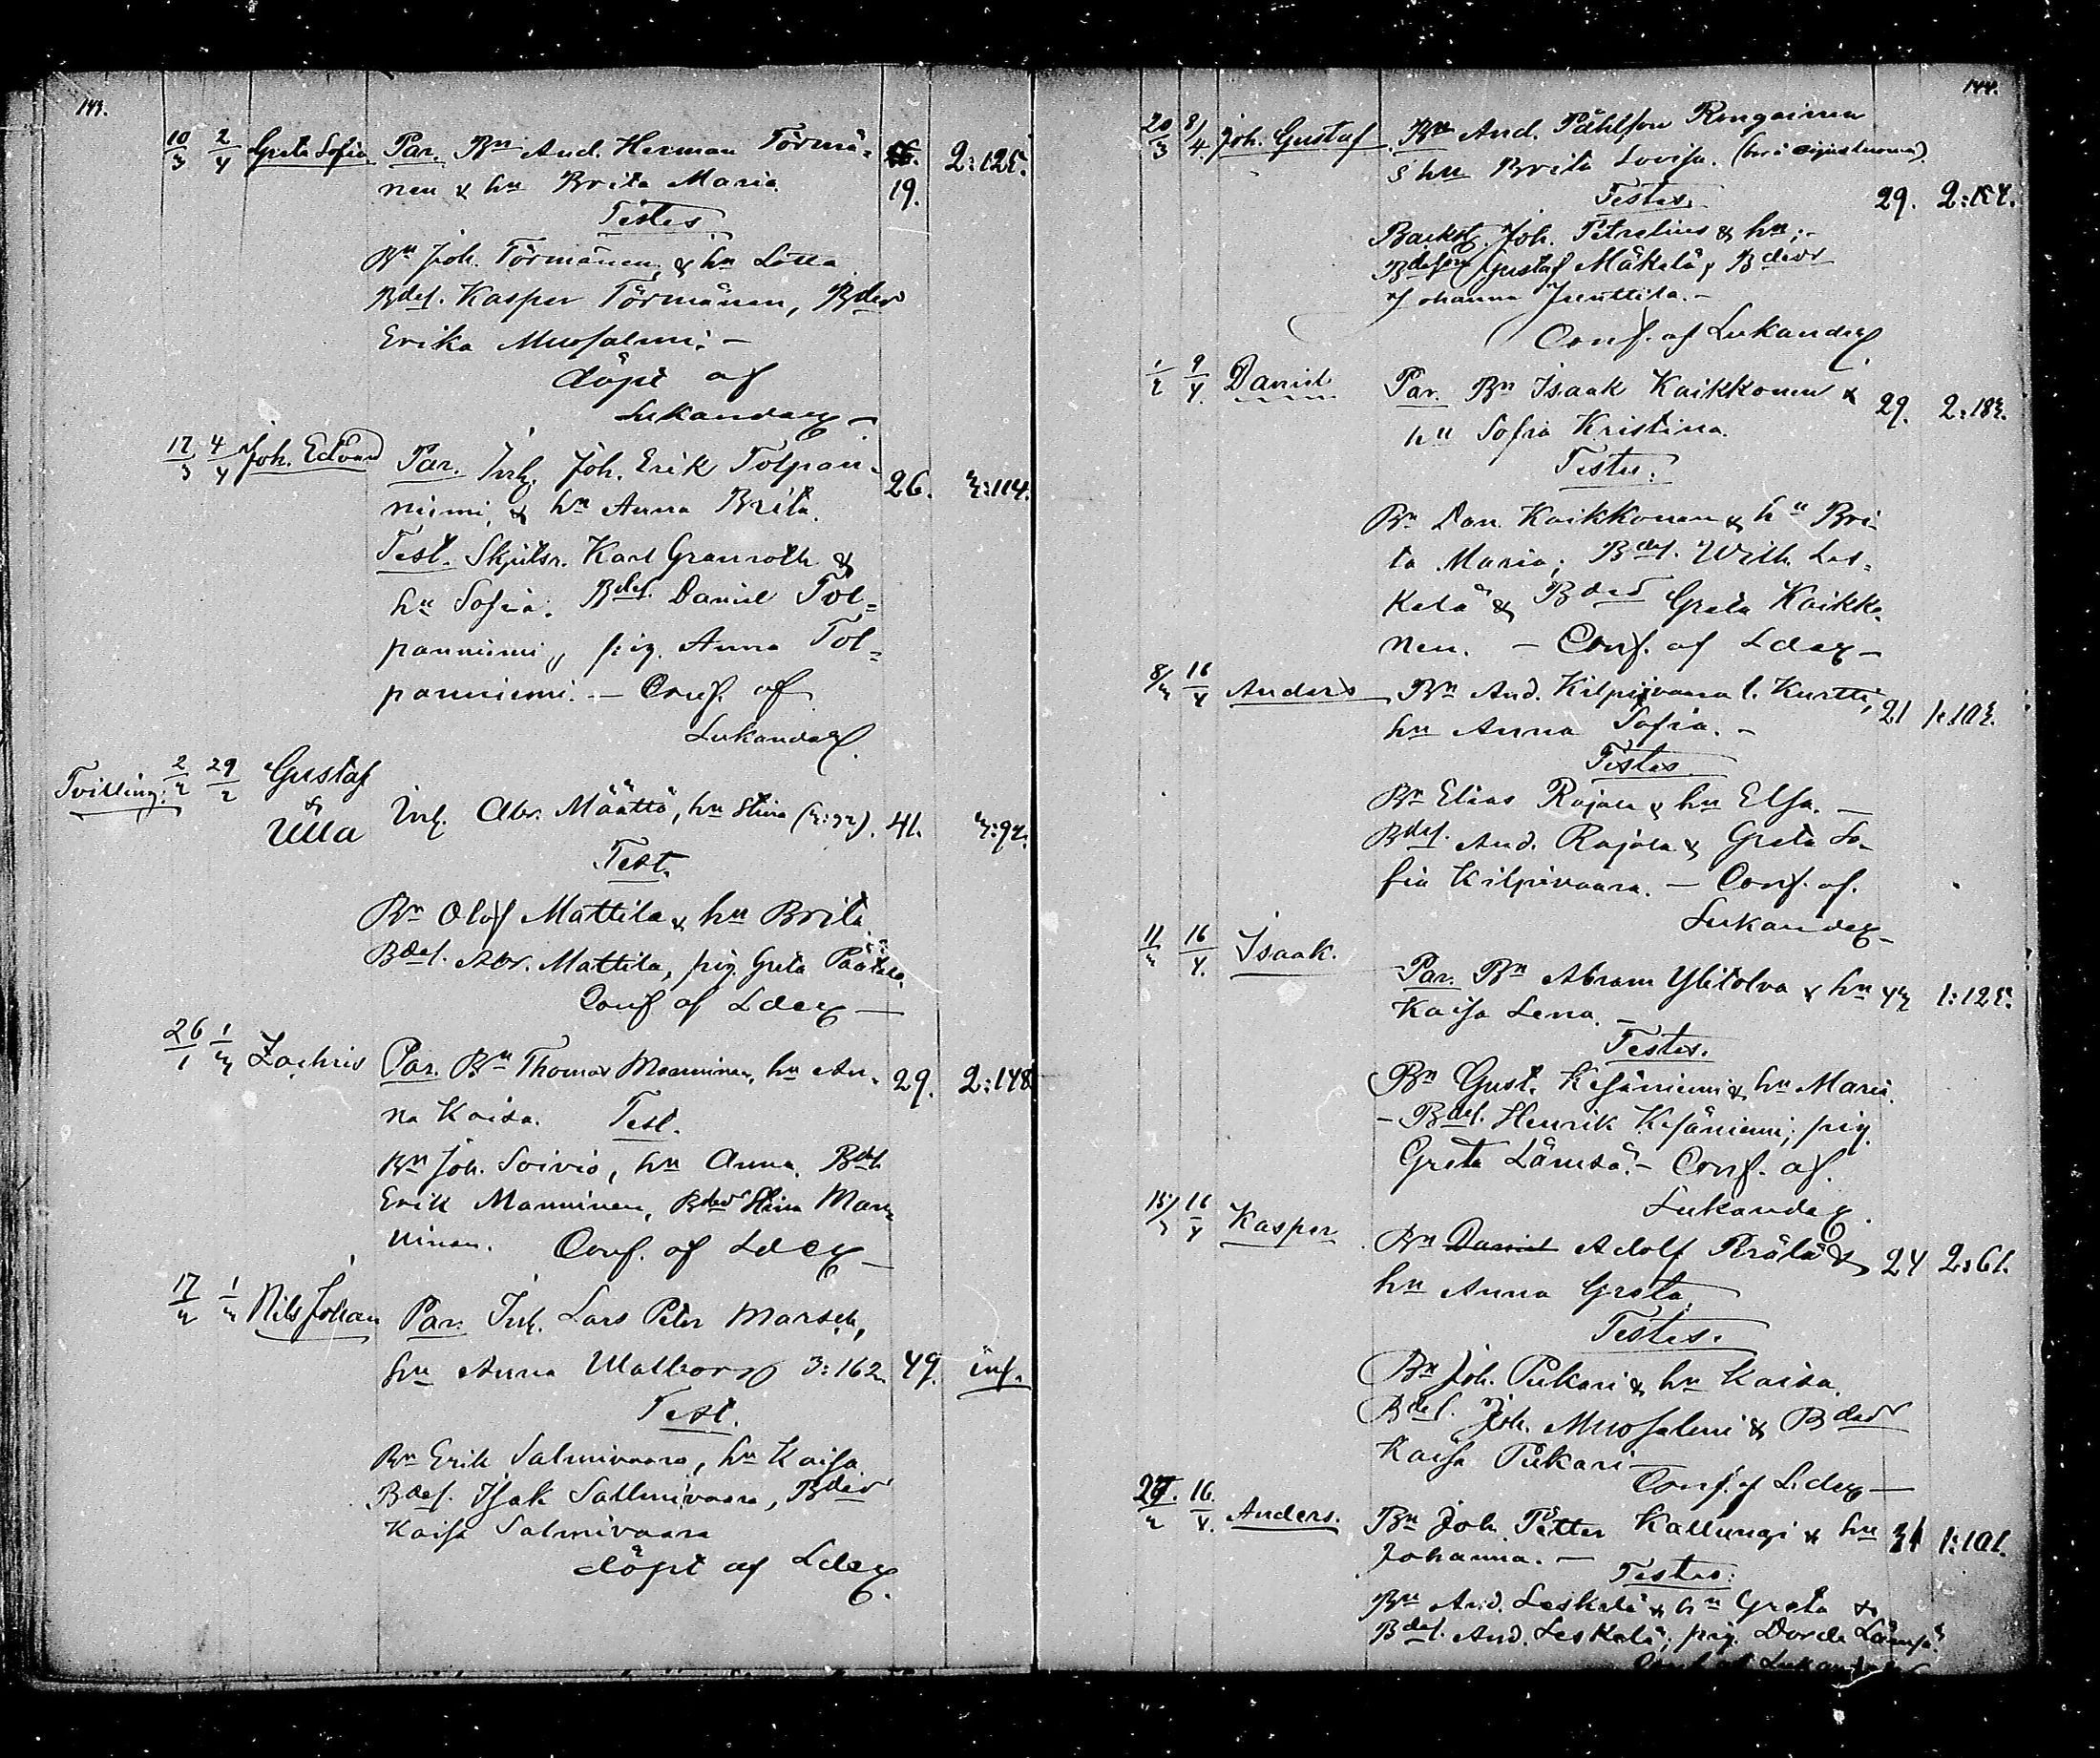 143.
10/3 2/4 Greta Sofia Par. Bn And. Herman Törmä- 2:125.
nen & hn Brita Maria. 19.
Testes
Bn Joh. Törmänen, & hn Lotta
Bdes. Kasper Törmänen, Bder
Erika Musalmi. —
döpt af
Lukander —
12/3 4/4 Joh. Edvard Par. Inh. Joh. Erik Tolpan- 26. 3:114.
niemi, & hn Anna Brita.
Test. Skjutsr. Karl Granroth &
hn Sofia. Bdes. Daniel Tol=
panniemi, pig. Anna Tol=
panniemi. — Conf. af
Lukander.
Tvilling: 2/2 29/2 Gustaf
& Ulla Inh. Abr. Määttä, hn Stina (3:92). 41. 3:92.
Test.
Bn Olof Mattila & hn Brita
Bdes. Abr. Mattila, pig. Greta
Conf af Lder —
26/1 1/3 Zachris Par. Bn Thomas Manninen, hn An- 29. 2:148
na Kaisa. Test.
Bn Joh. Soivio, hn Anna. Bdes
Erik Manninen, Bder Stina Man-
ninen. Conf. af Lder —
17/2 1/3 Nils Johan Par. Inh. Lars Peter Marsch,
hn Anna Walborg 3:162 49. inh.
Test.
Bn Erik Salmivaara, hn Kaisa
Bdes. Isak Sallmivaara, Bder
Kaisa Salmivaara
döpt af Lder.
144.
20/3 8/4. Joh. Gustaf Bn And. Påhlson Rongainen
& hn Brita Lovisa.
Testes. 29. 2:154.
Backst. Joh. Petrelius & hn; -
Bdeson Gustaf Mäkelä, Bder
Johanna Junttila. —
Conf. af Lukander
1/2 9/4. Daniel Par. Bn Isaak Kaikkonen & 29. 2:183.
hn Sofia Kristina.
Testes:
Bn Dan. Kaikkonen & hn Bri-
ta Maria; Bdes. Wilh. Les-
kelä & Bder Greta Kaikko-
nen. — Conf. af Lder —
8/3 16/4 Anders Bn And. Kilpivaara l. Kurtti, 21 1:103.
hn Anna Sofia. —
Testes
Bn Elias Rajala & hn Elsa. —
Bdes. And. Rajala & Greta So-
fia Kilpivaara. — Conf. af.
Lukander —
11/3 16/4. Isaak. Par. Bn Abram Ylitolva & hn 43 1:125.
Kaisa Lena. —
Testes.
Bn Gust. Kesäniemi & hn Maria.
— Bdes. Henrik Kesäniemi; pig.
Greta Lämsä. — Conf. af.
Lukander.
15/3 16/4 Kasper Bn Daniel Adolf Perälä & 24 2:61.
hn Anna Greta
Testes.
Bn Joh. Pukari & hn Kaisa.
Bdes. Joh. Musalmi & Bder
Kaisa Pukari
Conf. af Lder —
16/4. Anders. Bn Joh. Petter Kallungi & hn 31 1:101.
Johanna. —
Testes:
Bn And. Leskelä & hn Greta &
Bdes. And. Leskelä; pig. Dorde Lämsä
Conf. af Lukander